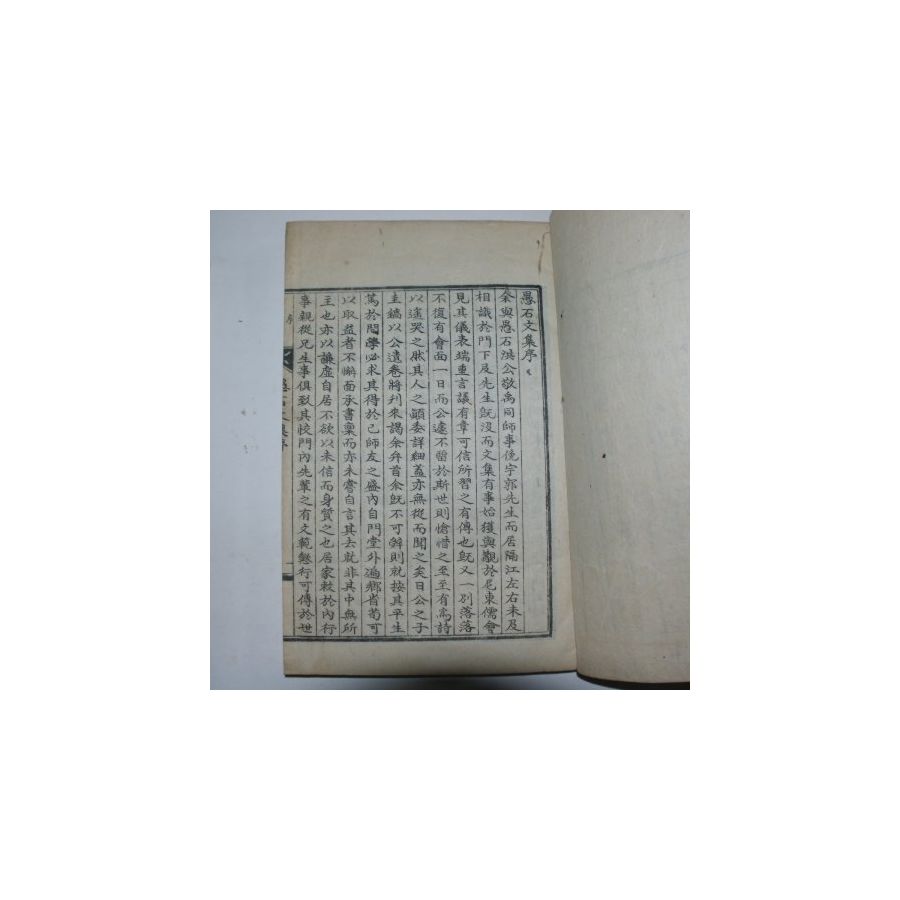 愚石文集序
余與愚石洪公敬禹同師事俛宇郭先生而居隔江左右未及
相識於門下及先生旣沒而文集有事始獲與觀於尼東儒會
見其儀表端重言議有章可信所習之有傳也旣又一別落落
不復有會面一日而公遽不留於斯世則愴惜之至至有爲詩
以遙哭之然其人之顚委詳細蓋亦無從而聞之矣日公之子
圭鎬以公遺卷將刋來謁余弁首余旣不可辭則就按其平生
篤於問學必求其得於己師友之盛內自門堂外遍鄕省苟可
以取益者不懈面承書稟而亦未嘗自言其去就非其中無所
主也亦以謙虛自居不欲以未信而身質之也居家敕於內行
事親從兄生事俱致其 門內先輩之有文範懿行可傳於世
愚石文集序
序